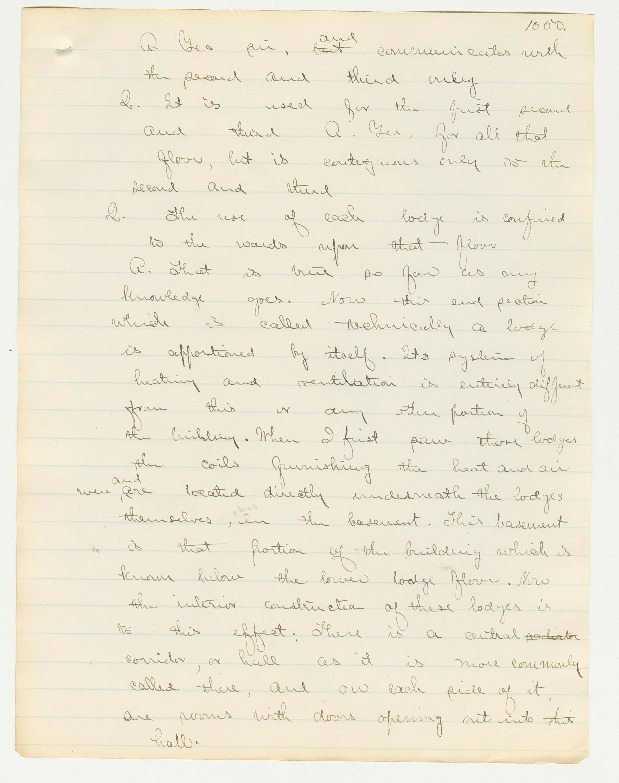 1050.
A. Yes sir, and
but communicates with
the second and third only
Q. It is used for the first second
and third A. Yes, for all that
floor, but is contiguous only to the
second and third
Q. The use of each lodge is confined
to the wards upon that floor
A. That is true so far as my
knowledge goes. Now this end portion
which is called technically a lodge
is apportioned by itself. Its system of
heating and ventilation is entirely different
from this or any other portion of
the building. When I first saw these lodges
the coils furnishing the heat and air
were and are located directly underneath the lodges
themselves, in the basement. This basement
is that portion of the building which is
known below the lower lodge floor. Now
the interior construction of these lodges is
to this effect; There is a central
corridor, or hall as it is more commonly
called there, and on each side of it
are rooms with doors opening out into this
hall.